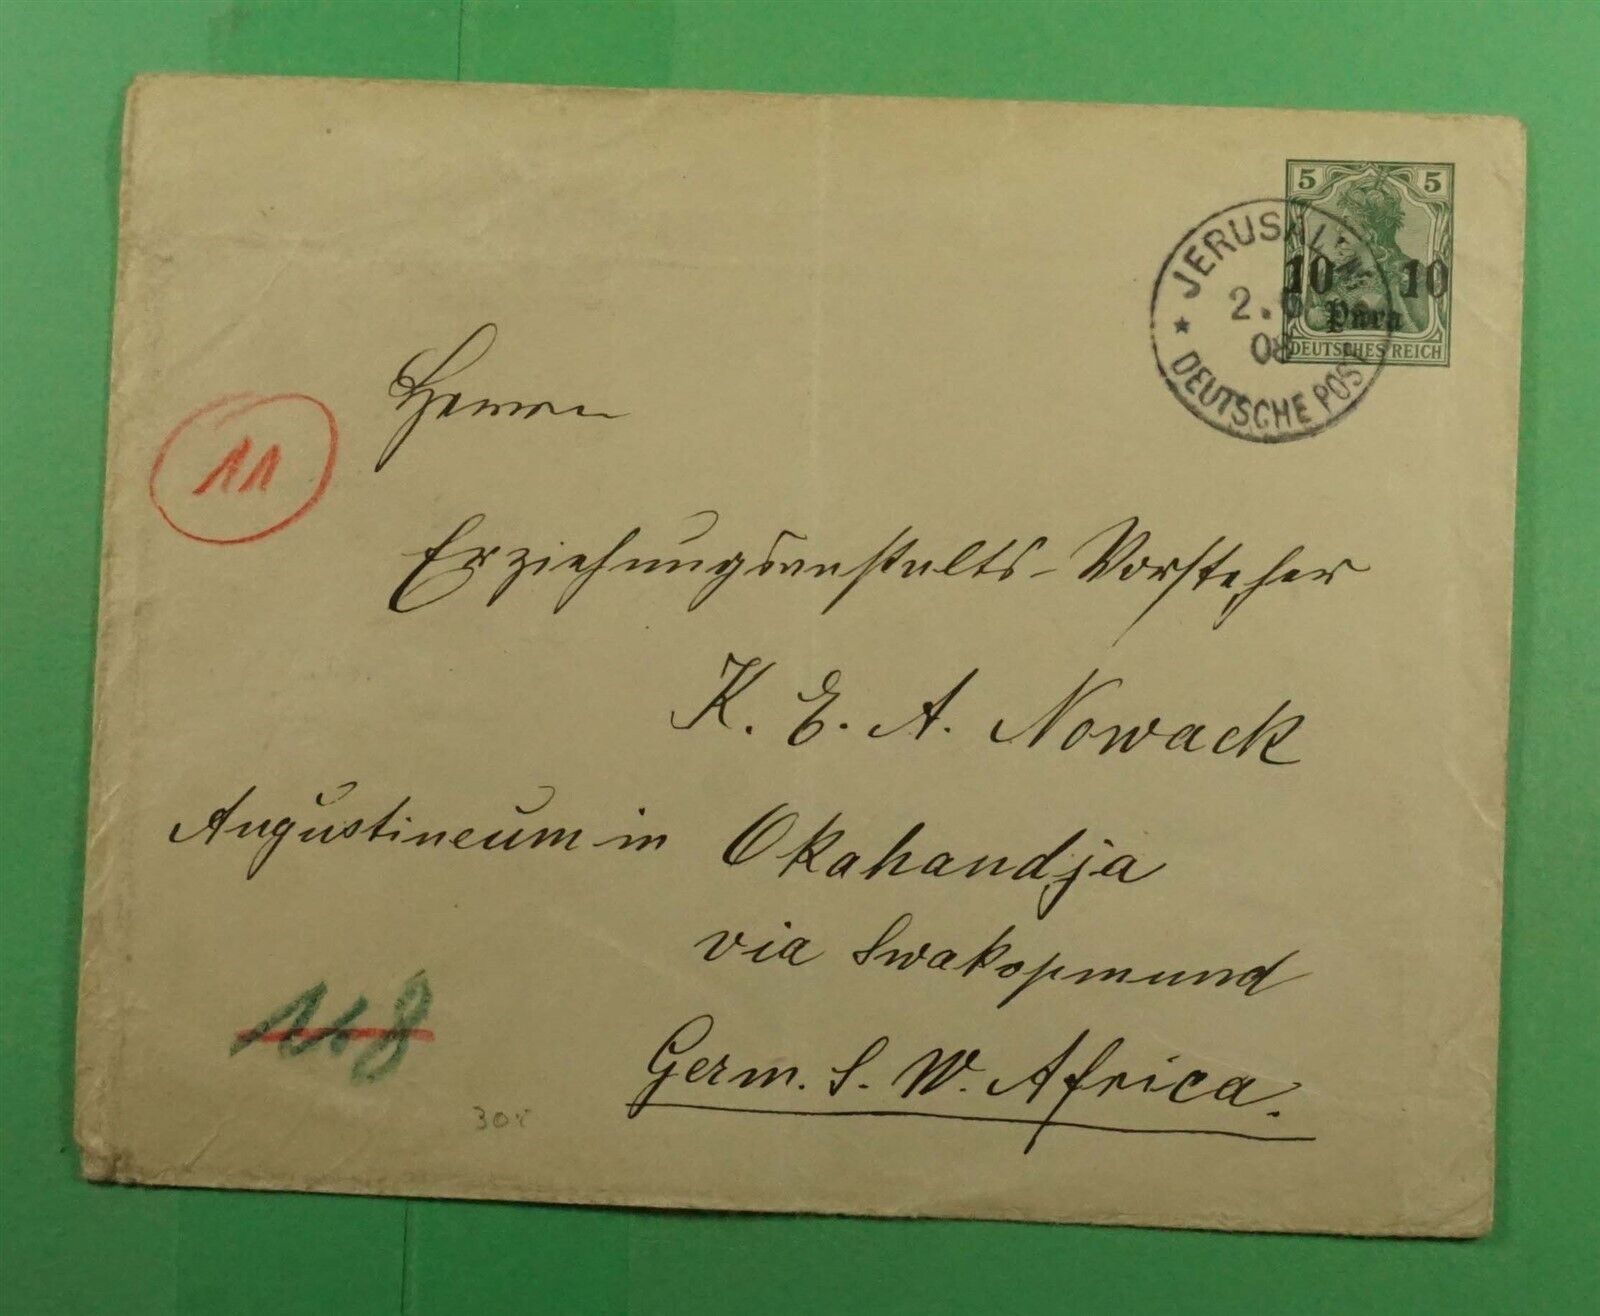 5 5
10 10
Para
DEUTSCHES REICH
JERUSALEM
2.
08
DEUTSCHE POST
Herrn
11
Erziehungsanstalts-Vorsteher
K. E. A. Nowack
Augustineum in Okahandja
via Swakopmund
Germ. S. W. Africa.
168
30r